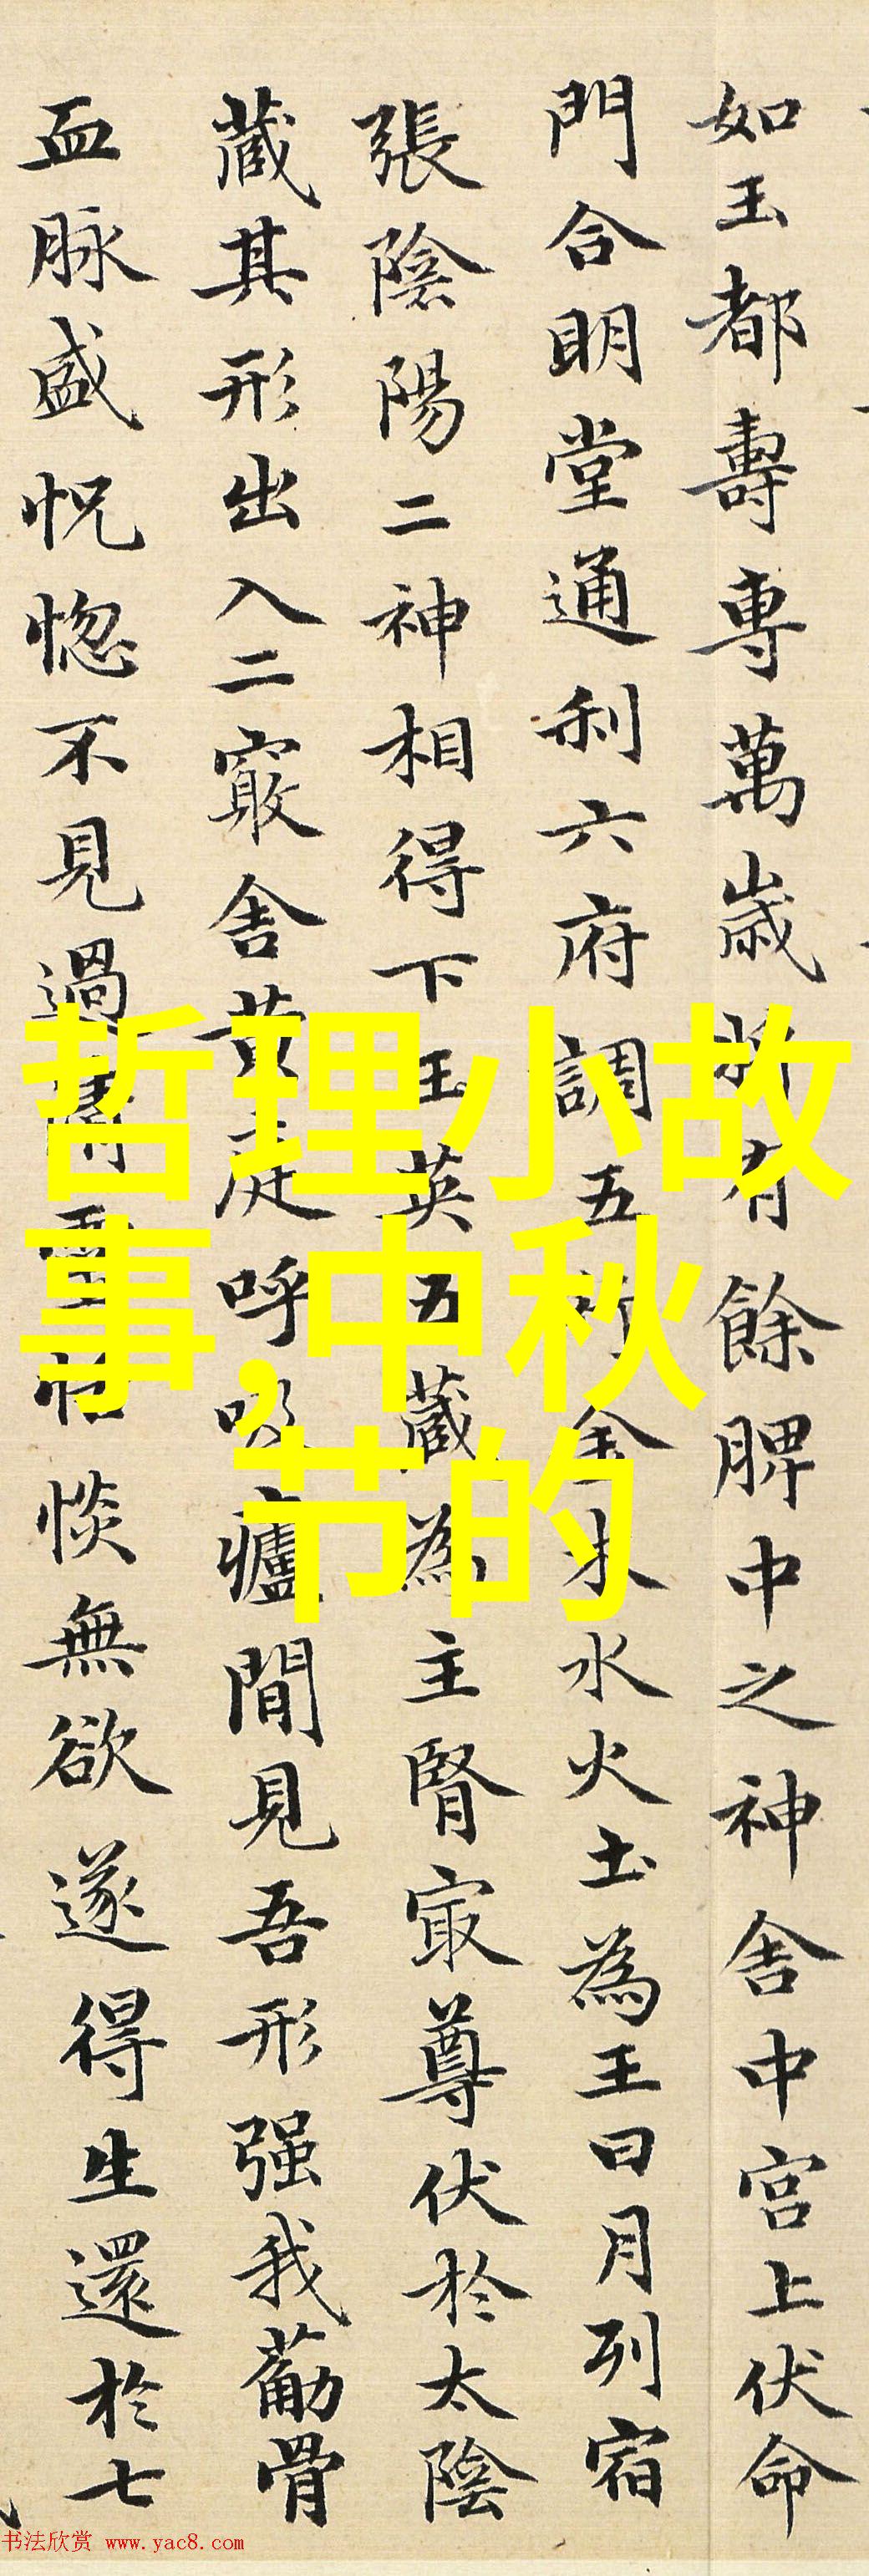 如玉都壽專萬歲將有餘脾中之神舍中宮上伏命
門合明堂通利六府調五行金木水火土為王日月列宿
張陰陽二神相得下玉英五藏為主腎冣尊伏於太陰
藏其形出入二竅舍黄庭呼吸廬間見吾形强我葍骨
血脉盛怳惚不見過清靈恬惔無欲遂得生還於七
哲理小故
事,中秋
节的
书法欣赏 www.yac8.com